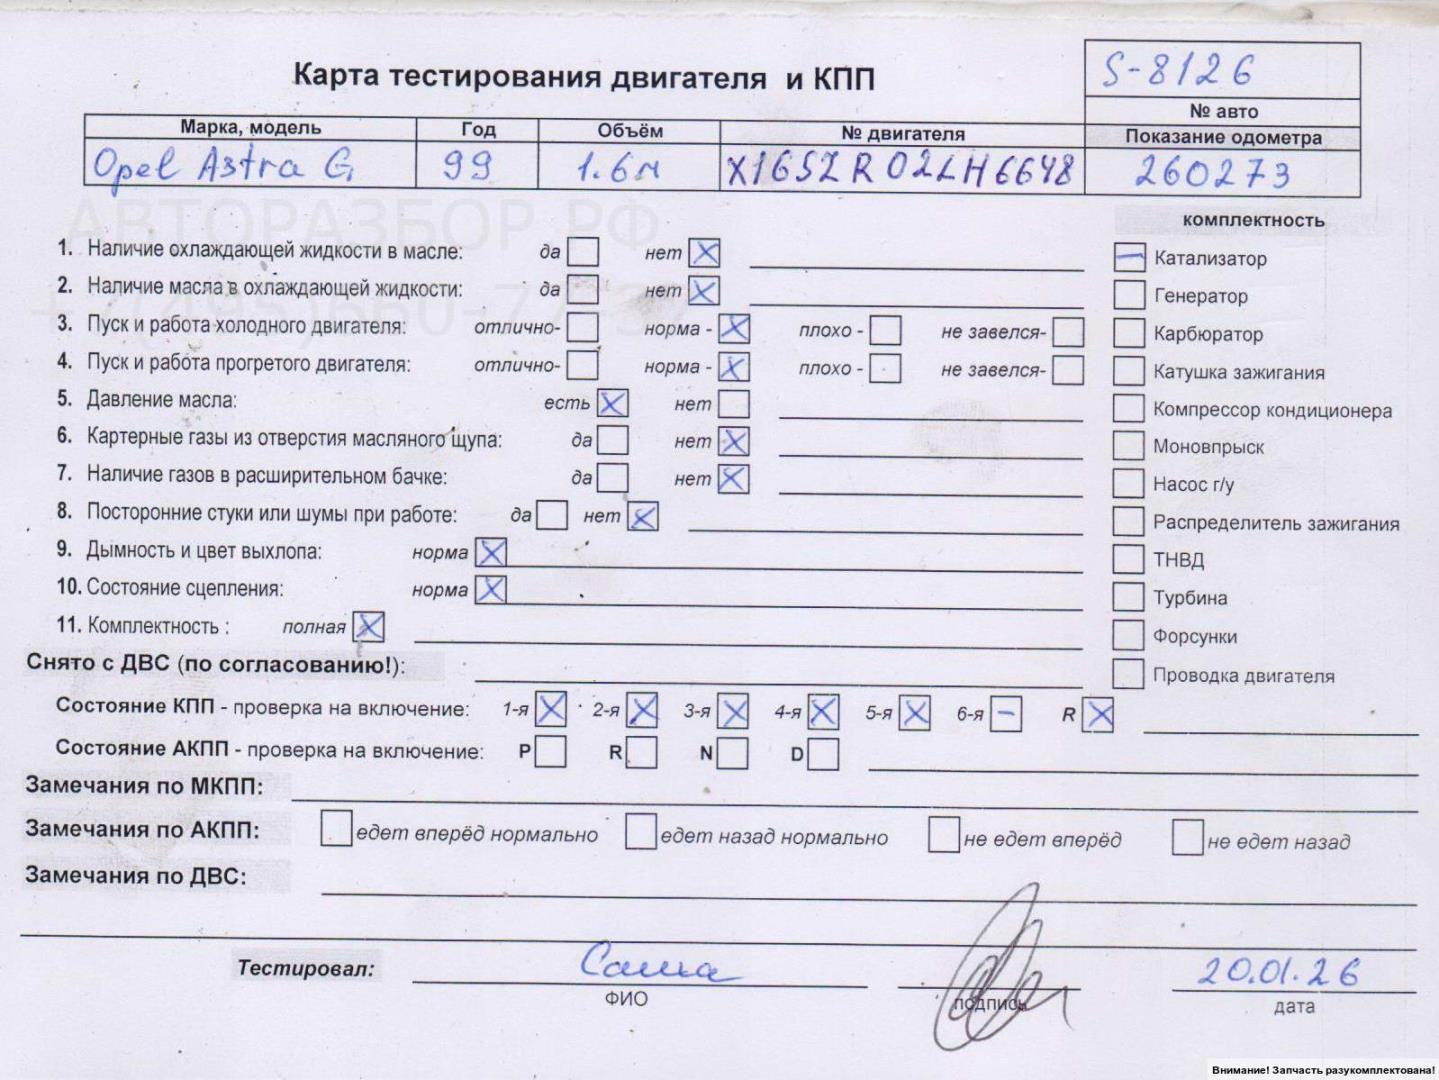 S-8126
Карта тестирования двигателя и КПП
№ авто
Марка, модель Год Объём № двигателя Показание одометра
Opel Astra G 99 1.6м X16SZR02LH6648 260273
АВТОРАЗБОР.РФ
комплектность
1. Наличие охлаждающей жидкости в масле: да нет
Катализатор
2. Наличие масла в охлаждающей жидкости: да нет
Генератор
3. Пуск и работа холодного двигателя: отлично- норма - плохо - не завелся-
Карбюратор
4. Пуск и работа прогретого двигателя: отлично- норма - плохо - не завелся-
Катушка зажигания
5. Давление масла: есть нет
Компрессор кондиционера
6. Картерные газы из отверстия масляного щупа: да нет
Моновпрыск
7. Наличие газов в расширительном бачке: да нет
Насос г/у
8. Посторонние стуки или шумы при работе: да нет
Распределитель зажигания
9. Дымность и цвет выхлопа: норма
ТНВД
10. Состояние сцепления: норма
Турбина
11. Комплектность : полная
Форсунки
Снято с ДВС (по согласованию!):
Проводка двигателя
Состояние КПП - проверка на включение: 1-я 2-я 3-я 4-я 5-я 6-я R
Состояние АКПП - проверка на включение: P R N D
Замечания по МКПП:
Замечания по АКПП: едет вперёд нормально едет назад нормально не едет вперёд не едет назад
Замечания по ДВС:
Тестировал: Саша 20.01.26
ФИО подпись дата
Внимание! Запчасть разукомплектована!